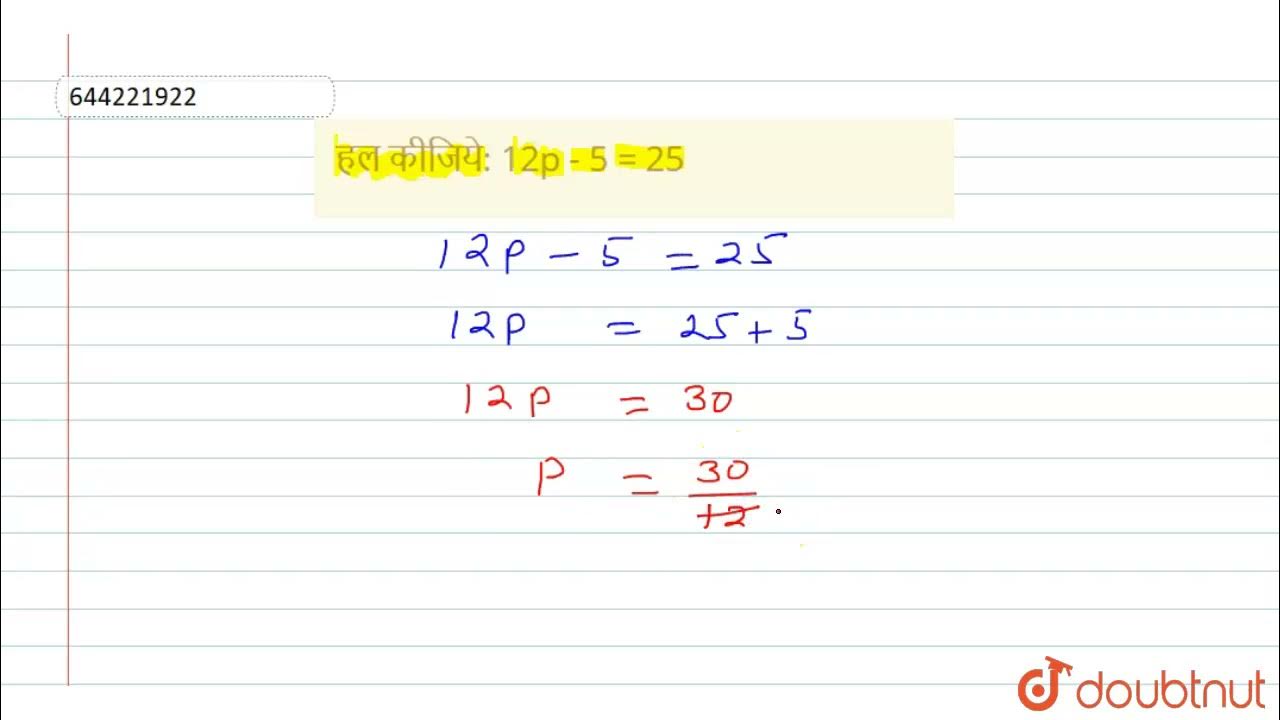 644221922
हल कीजिये: 12p - 5 = 25
12p - 5 = 25
12p = 25 + 5
12p = 30
p = 30/12
doubtnut